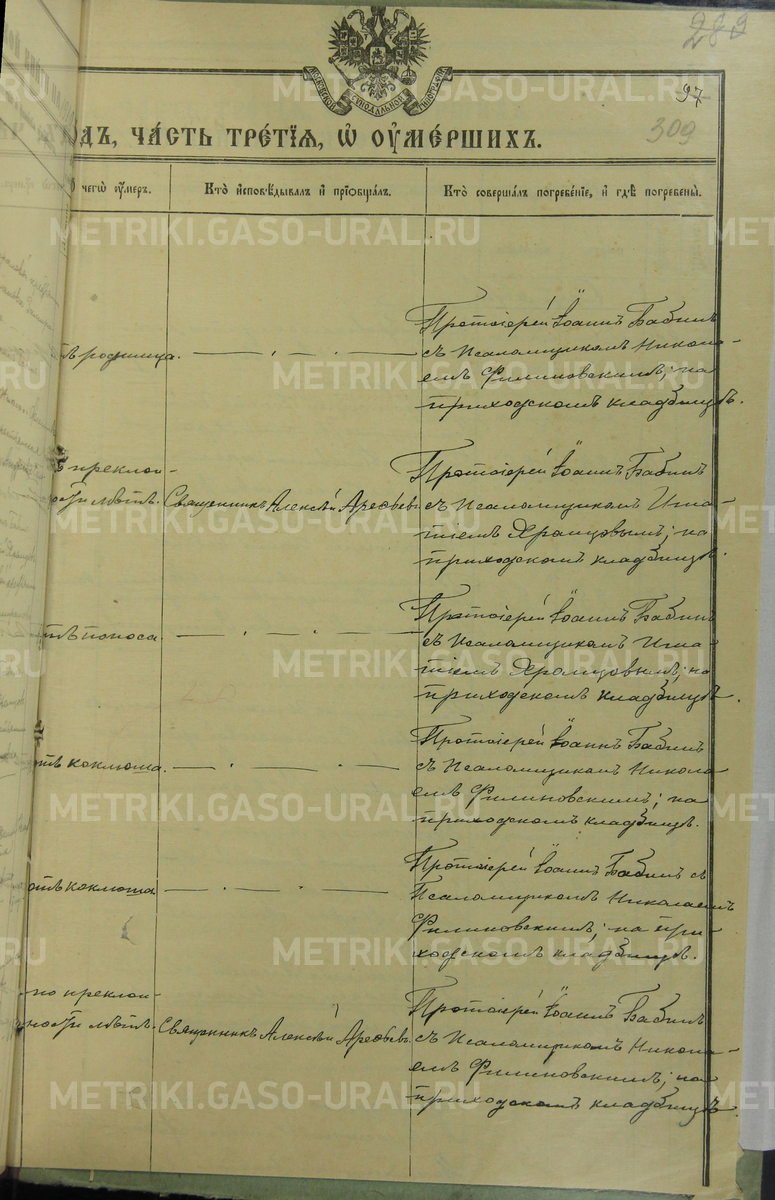 289
97
309
МОСКОВСКОЙ СѴНОДАЛЬНОЙ ТИПОГРАФІИ
ОДЪ, ЧА́СТЬ ТРЕ́ТІЯ, Ѡ҆ ОУ҆МЕ́РШИХЪ.
О чегѡ̀ ᲂу҆́меръ.
Кто̀ и҆сповѣ́дывалъ и҆ прїѡбща́лъ.
Кто̀ соверша́лъ погребе́нїе, и҆ гдѣ̀ погребены̀.
METRIKI.GASO-URAL.RU
тъ родимца.
Протоіерей Іоаннъ Бабинъ
съ Псаломщикомъ Никола-
емъ Филиновскимъ; на
приходскомъ кладбищѣ.
преклон-
ности лѣтъ.
Священникъ Алексѣй Арефьевъ
Протоіерей Іоаннъ Бабинъ
съ Псаломщикомъ Игна-
тіемъ Храмцовымъ; на
приходскомъ кладбищѣ.
тъ поноса.
Протоіерей Іоаннъ Бабинъ
съ Псаломщикомъ Игна-
тіемъ Храмцовымъ; на
приходскомъ кладбищѣ.
отъ коклюша.
Протоіерей Іоаннъ Бабинъ
съ Псаломщикомъ Никола
емъ Филиновскимъ; на
приходскомъ кладбищѣ.
отъ коклюша
Протоіерей Іоаннъ Бабинъ съ
Псаломщикомъ Николаемъ
Филиновскимъ; на при-
ходскомъ кладбищѣ.
по преклон-
ности лѣтъ.
Священникъ Алексѣй Арефьевъ
Протоіерей Іоаннъ Бабинъ
съ Псаломщикомъ Никола-
емъ Филиновскимъ; на
приходскомъ кладбищѣ.